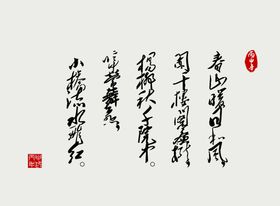 春山暖日和风
阑干楼阁帘栊
杨柳秋千院中
啼莺舞燕
小桥流水飞红。